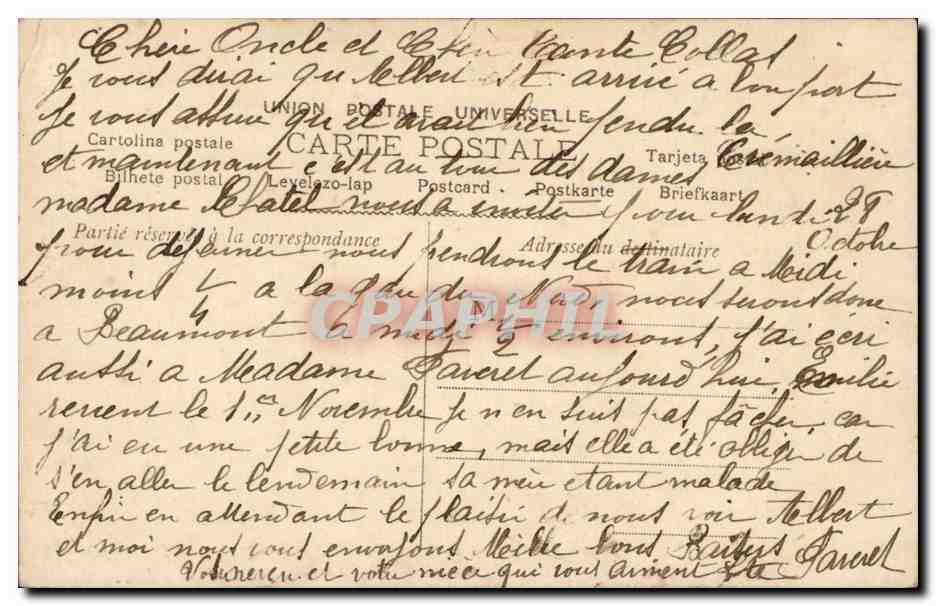 Chère Oncle et Chère Tante Collas
Je vous dirai que Albert est arrivé a bon port
UNION POSTALE UNIVERSELLE
Je vous assure qu'il avait bien fendu la
CARTE POSTALE
Cartolina postale Tarjeta postal
Crémaillière
et maintenant c'est au tour des dames
Bilhete postal Levelezo-lap Postcard Postkarte Briefkaart
madame nous a invité pour lundi 28
Octobre
Partie réservée à la correspondance Adresse du destinataire
pour déjeuner nous prendrons le train a Midi
moins 1/4 a la gare du Nord, nous serons donc
CPAPHIL
M
a Beaumont a midi 1/2 environt, j'ai écri
aussi a Madame Faveret aujourd'hui, Emilie
revient le 1er Novembre je n'en suis pas fâcher, car
j'ai eu une petite bonne, mais elle a été obliger de
s'en aller le lendemain sa mère étant malade
Enfin en attendant le plaisir de nous voir Albert
et moi nous vous envoyons Mille bons Baisers
Votre neveu et votre niece qui vous aiment Faveret